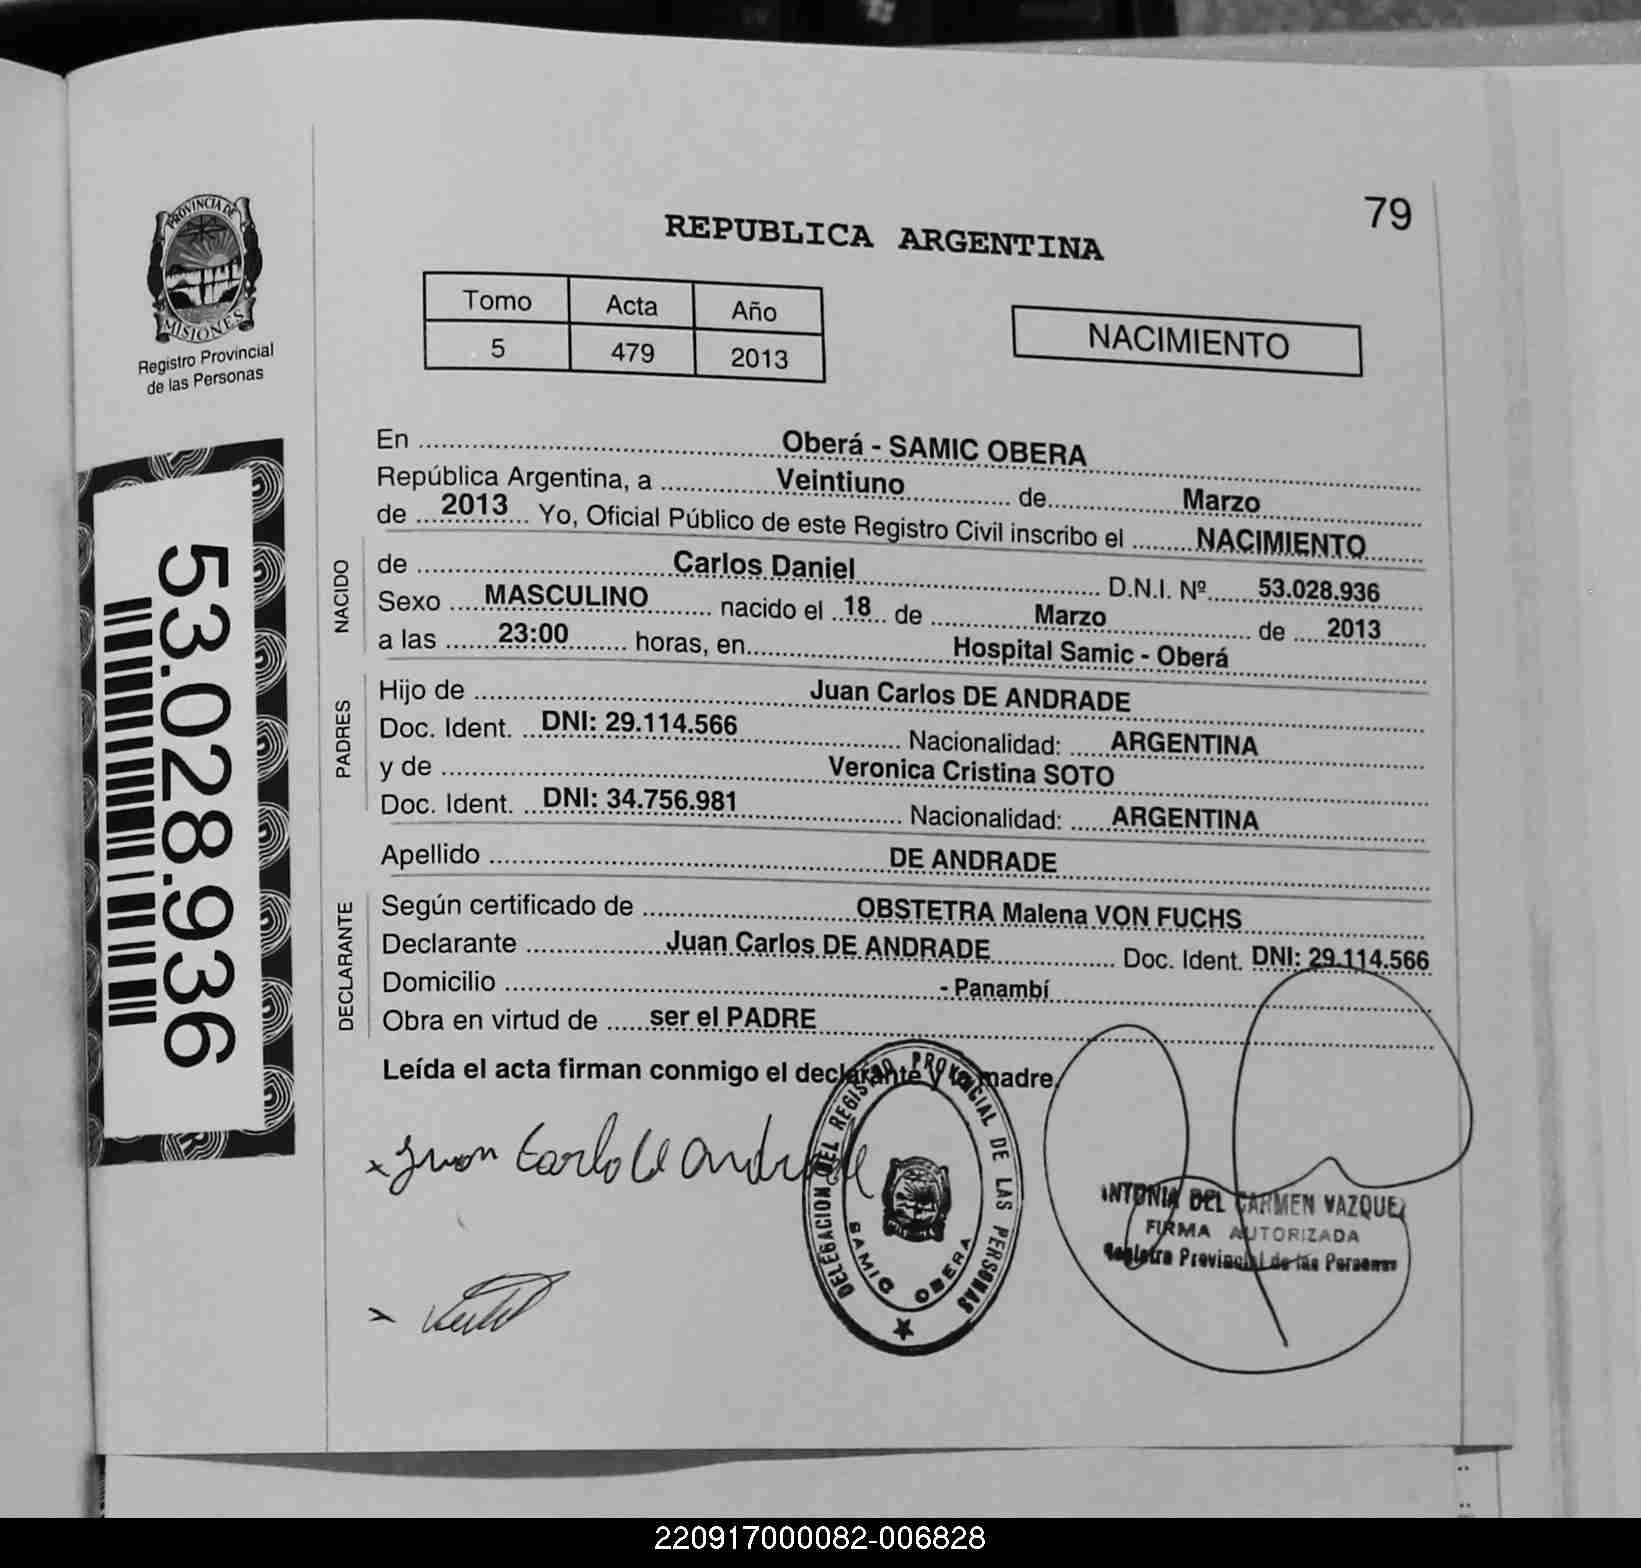 79
PROVINCIA DE
MISIONES
Registro Provincial
de las Personas
REPUBLICA ARGENTINA
Tomo Acta Año
5 479 2013
NACIMIENTO
53.028.936
En ........ Oberá - SAMIC OBERA
República Argentina, a ........ Veintiuno ........ de ........ Marzo
de ........ 2013 ........ Yo, Oficial Público de este Registro Civil inscribo el ........ NACIMIENTO
NACIDO
de ........ Carlos Daniel ........ D.N.I. Nº ........ 53.028.936
Sexo ........ MASCULINO ........ nacido el 18 de ........ Marzo ........ de ........ 2013
a las ........ 23:00 ........ horas, en ........ Hospital Samic - Oberá
PADRES
Hijo de ........ Juan Carlos DE ANDRADE
Doc. Ident. ... DNI: 29.114.566 ........ Nacionalidad: ..... ARGENTINA
y de ........ Veronica Cristina SOTO
Doc. Ident. ... DNI: 34.756.981 ........ Nacionalidad: ..... ARGENTINA
Apellido ........ DE ANDRADE
DECLARANTE
Según certificado de ........ OBSTETRA Malena VON FUCHS
Declarante ........ Juan Carlos DE ANDRADE ........ Doc. Ident. DNI: 29.114.566
Domicilio ........ - Panambí
Obra en virtud de ..... ser el PADRE
Leída el acta firman conmigo el declarante y la madre.
DELEGACION DEL REGISTRO PROVINCIAL DE LAS PERSONAS
SAMIC OBERA
x Juan Carlo de Andrade
ANTONIA DEL CARMEN VAZQUEZ
FIRMA AUTORIZADA
Registro Provincial de las Personas
220917000082-006828